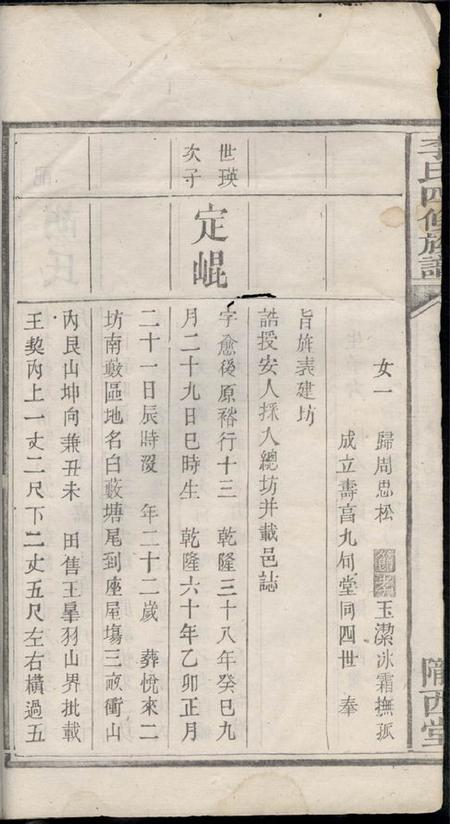 李氏四修族譜
隴西堂
女一　歸周思松　節孝　玉潔冰霜撫孤
成立壽高九旬堂同四世　奉
旨旌表建坊
誥授安人採入總坊并載邑誌
世瑛
次子
定崐
字愈後原裕行十三　乾隆三十八年癸巳九
月二十九日巳時生　乾隆六十年乙卯正月
二十一日辰時沒　年二十二歲　葬悅來二
坊南藪區地名白藪塘尾到座屋塲三畝衝山
內艮山坤向兼丑未　田售王羣羽山界批載
王契內上一丈二尺下二丈五尺左右橫過五